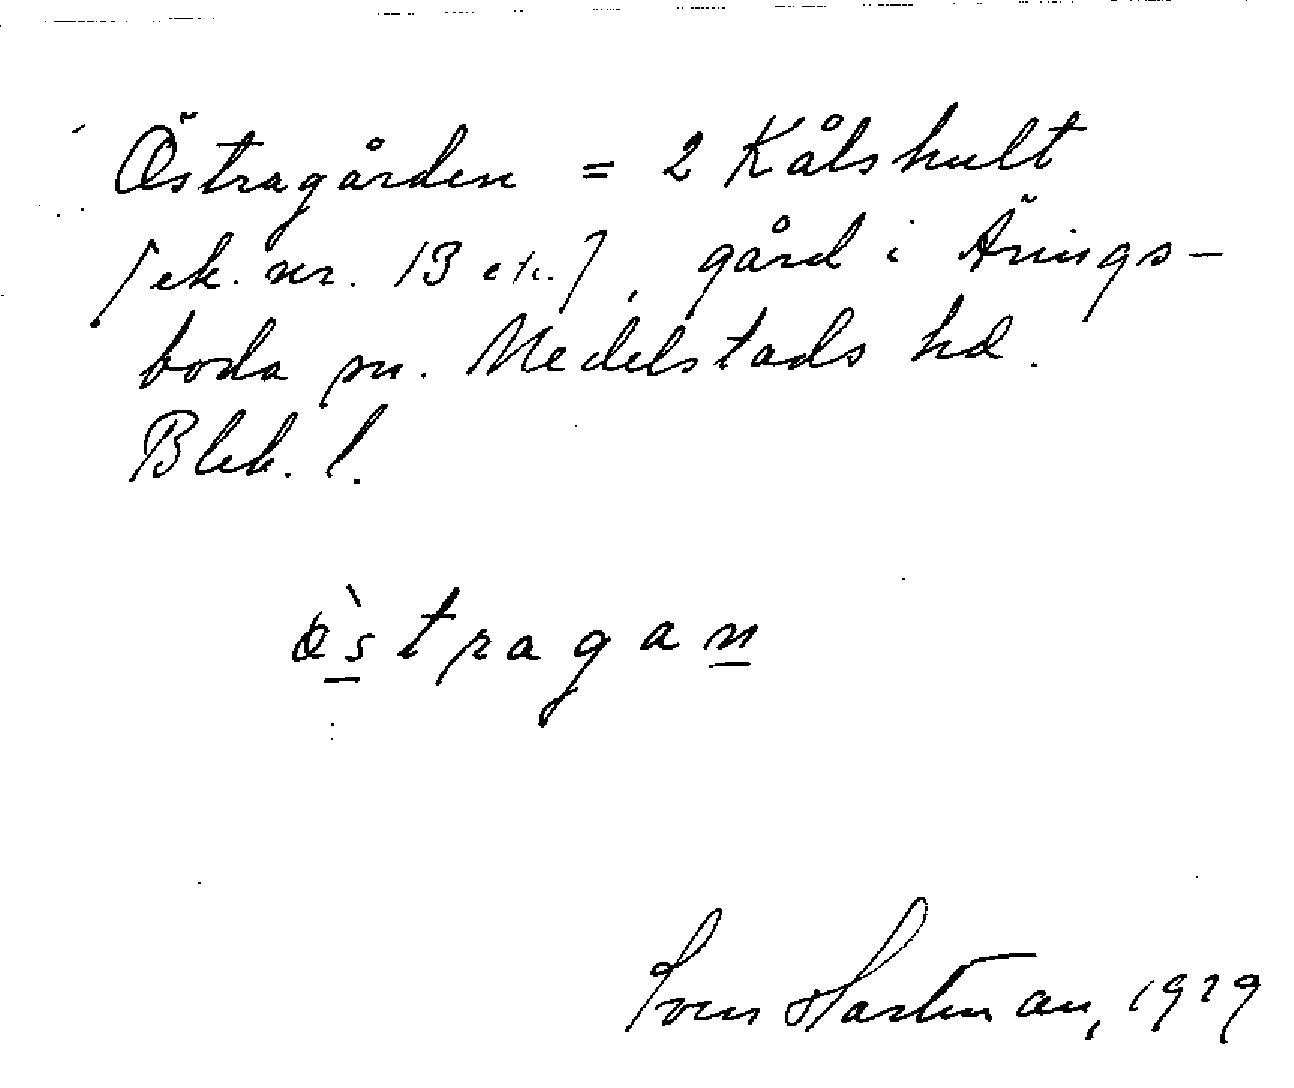 Östragården = 2 Kålshult
[ek. nr. 13 etc.], gård i Ärings-
boda sn. Medelstads hd.
Blek. l.
östragan
Sven Hartman, 1929